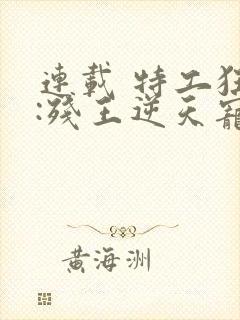 連載 特工狂
:殘王逆天寵
黃海洲